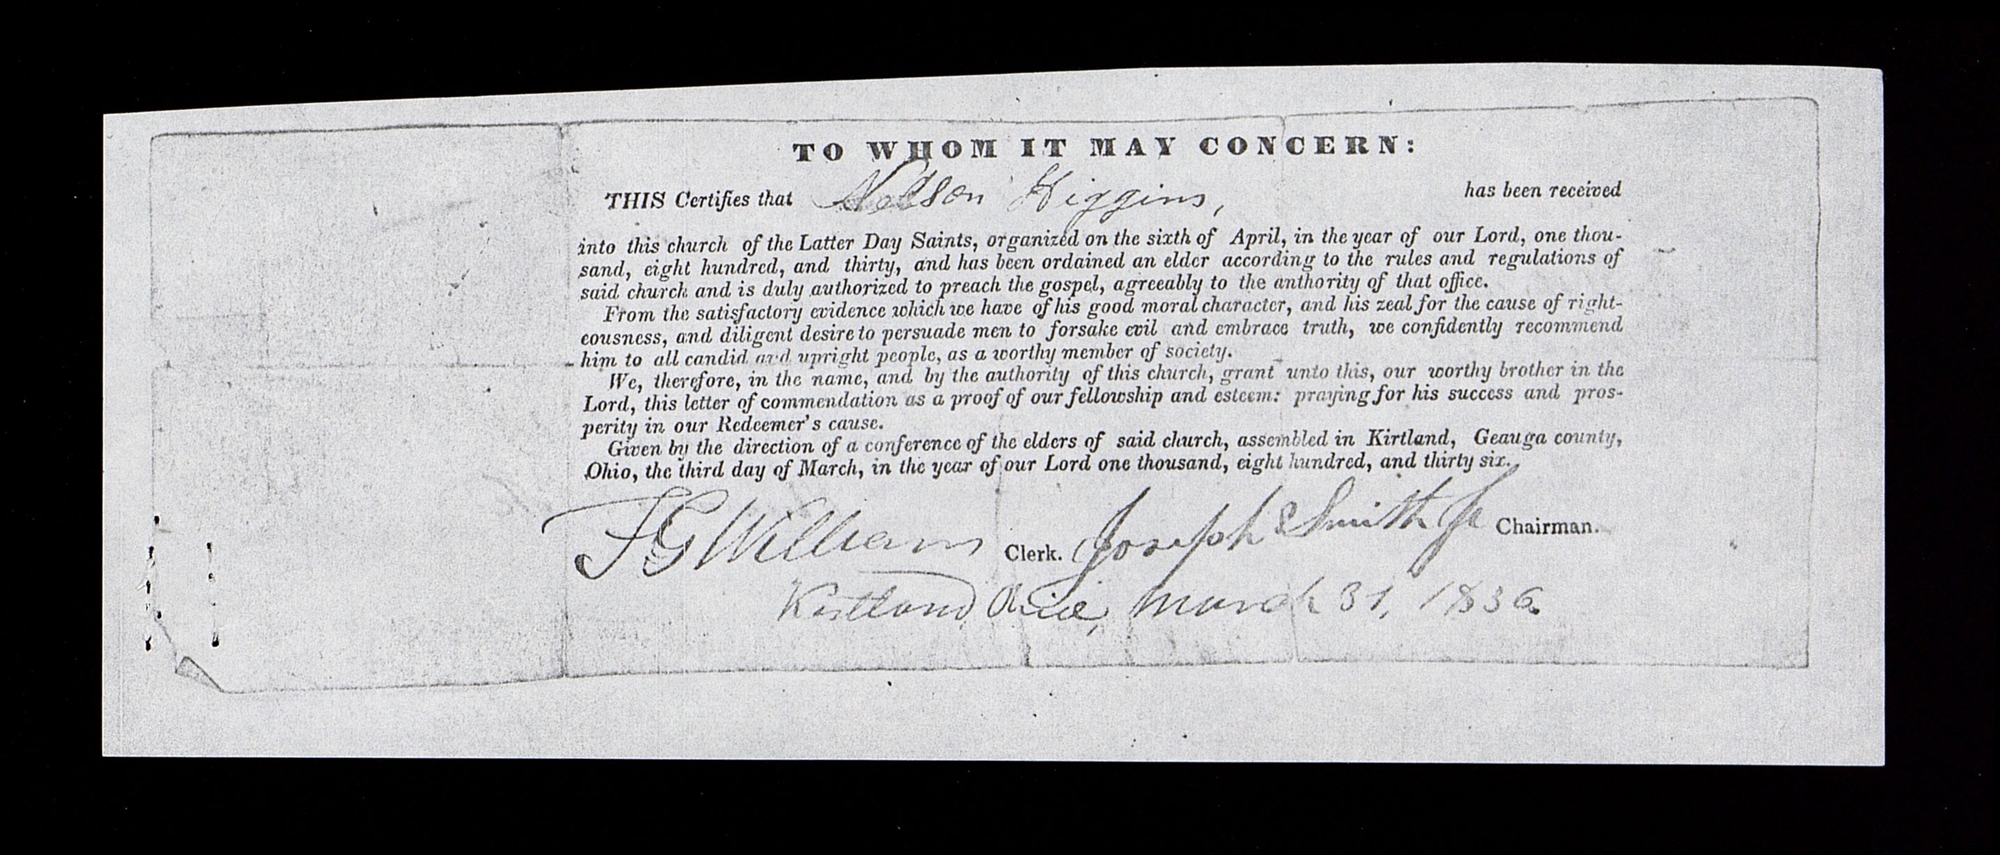 TO WHOM IT MAY CONCERN:
THIS Certifies that Nelson Higgins, has been received
into this church of the Latter Day Saints, organized on the sixth of April, in the year of our Lord, one thou-
sand, eight hundred, and thirty, and has been ordained an elder according to the rules and regulations of
said church and is duly authorized to preach the gospel, agreeably to the anthority of that office.
From the satisfactory evidence which we have of his good moral character, and his zeal for the cause of right-
eousness, and diligent desire to persuade men to forsake evil and embrace truth, we confidently recommend
him to all candid and upright people, as a worthy member of society.
We, therefore, in the name, and by the authority of this church, grant unto this, our worthy brother in the
Lord, this letter of commendation as a proof of our fellowship and esteem: praying for his success and pros-
perity in our Redeemer's cause.
Given by the direction of a conference of the elders of said church, assembled in Kirtland, Geauga county,
Ohio, the third day of March, in the year of our Lord one thousand, eight hundred, and thirty six.
F G Williams Clerk. Joseph Smith Jr Chairman.
Kirtland, Ohio, March 31, 1836.